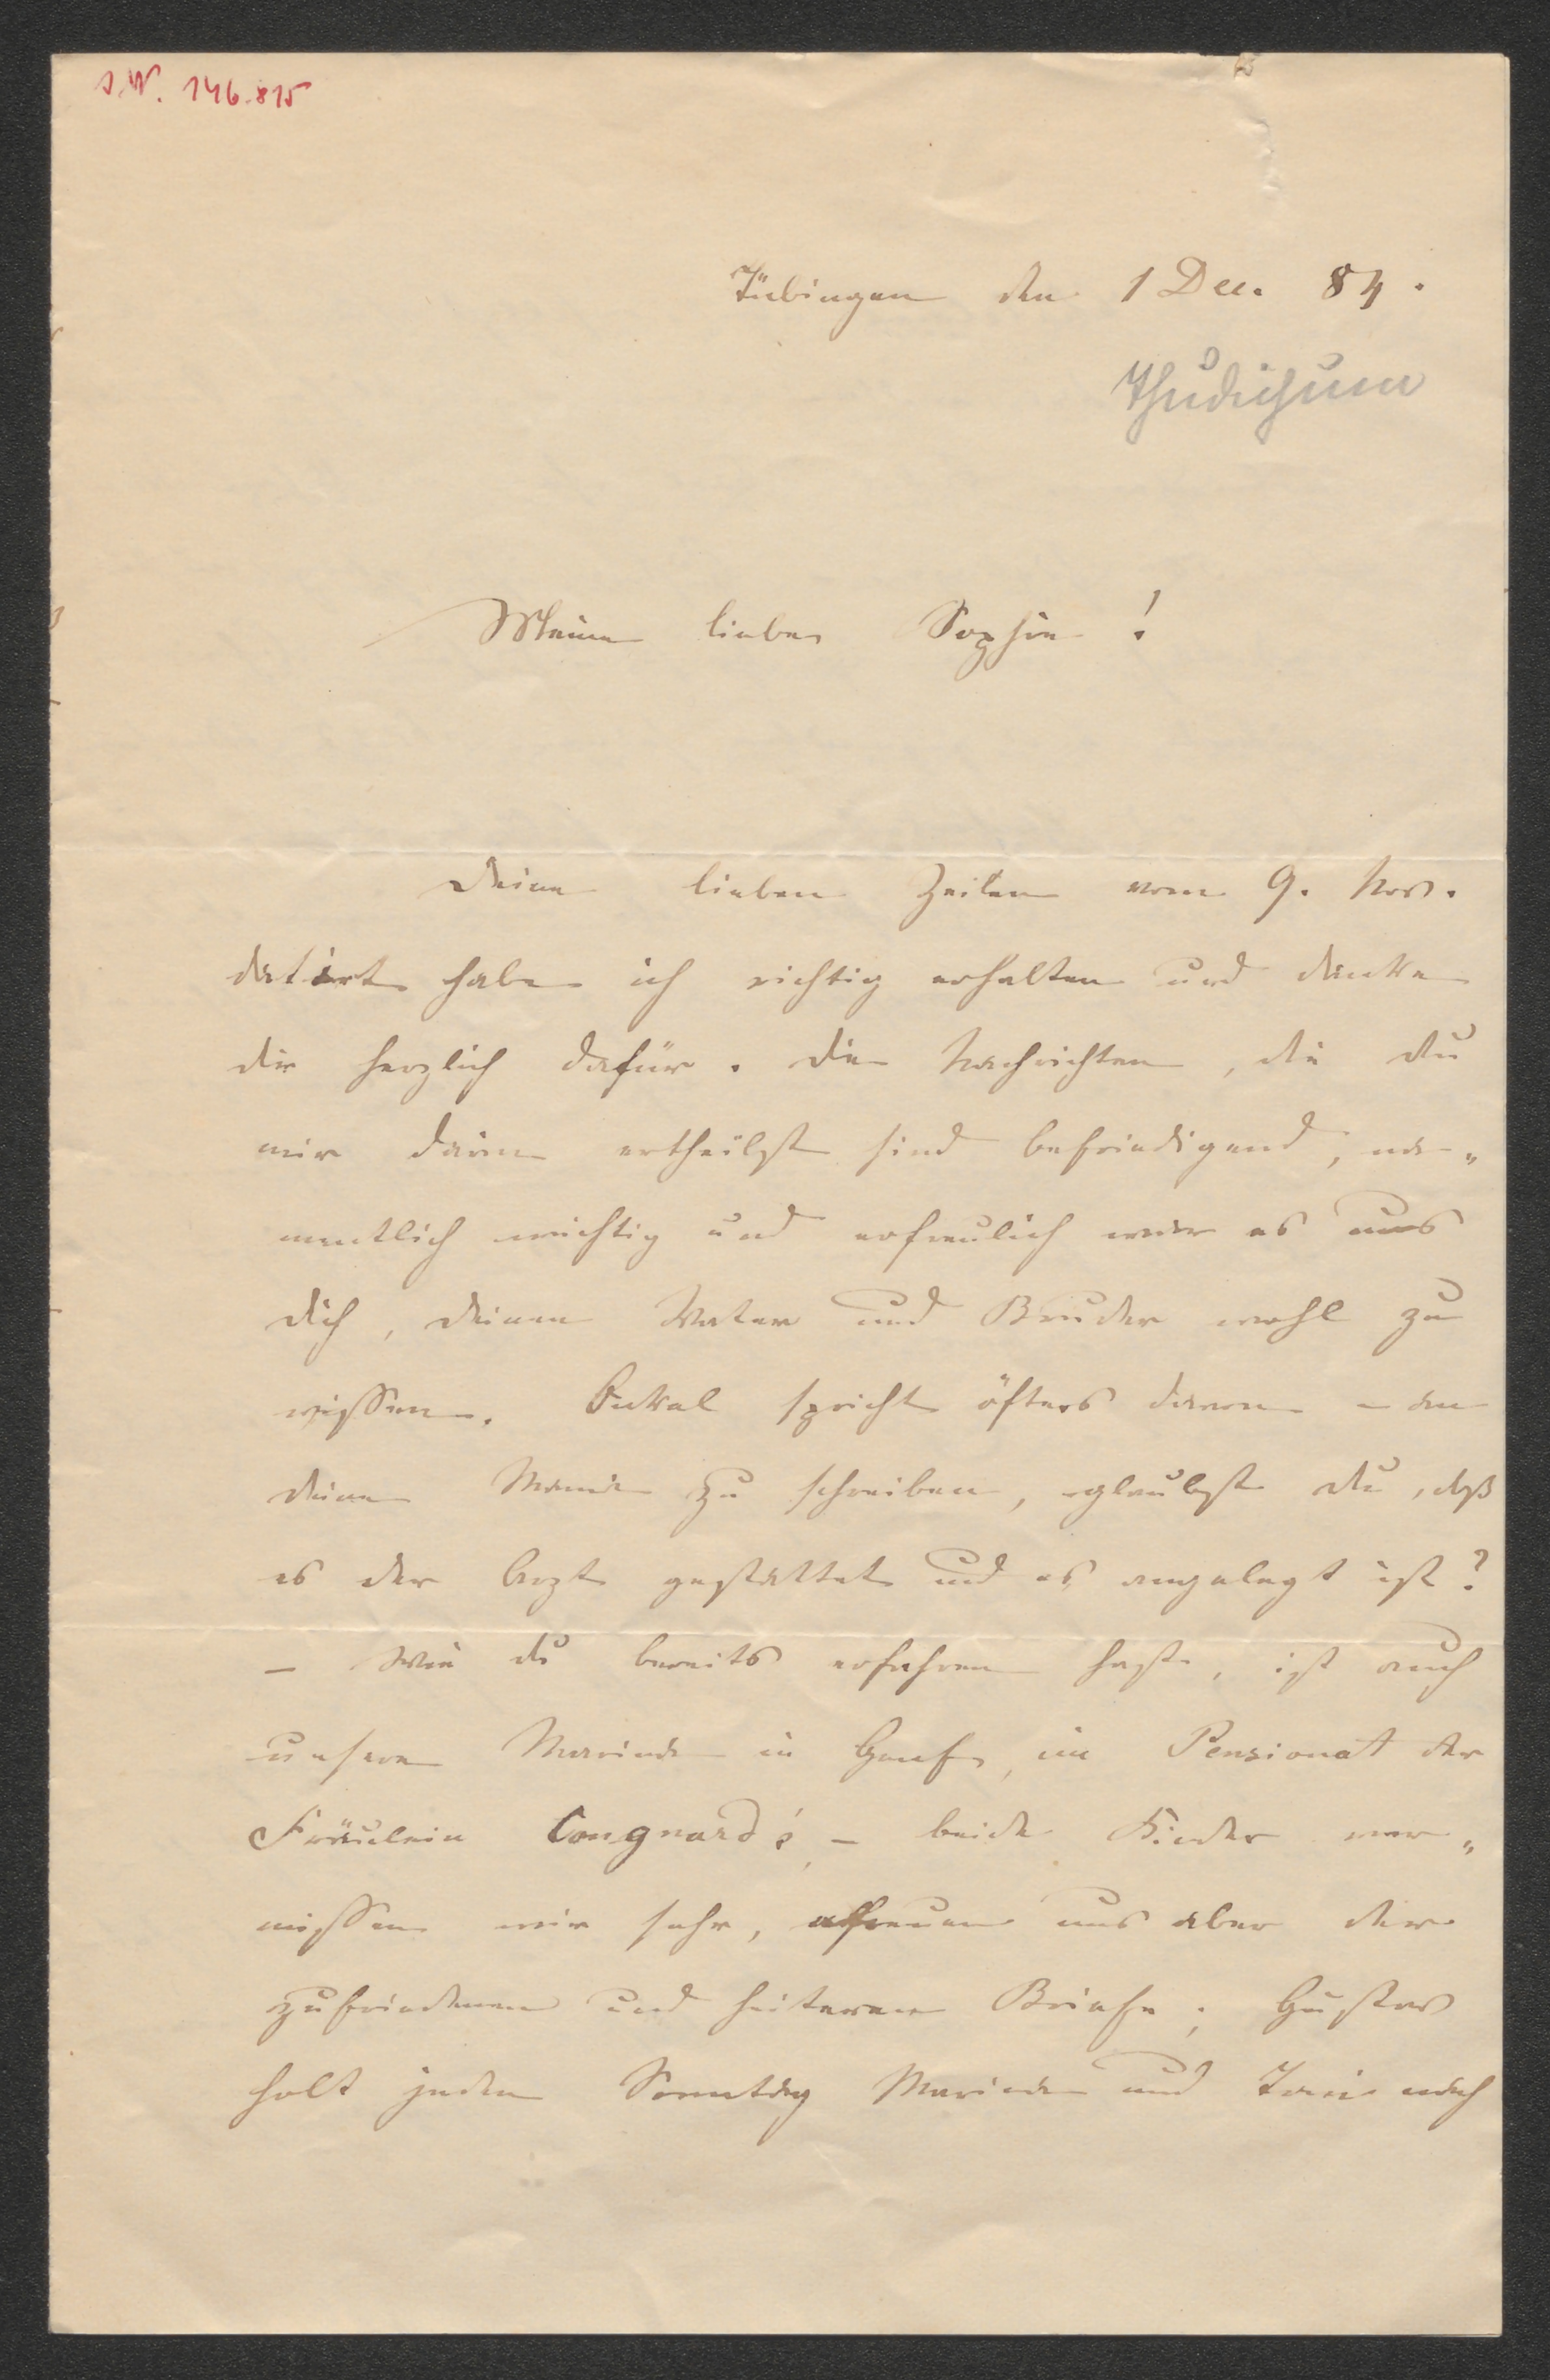 J.N. 146.815
Tübingen den 1 Dec. 84.
Thudichum
Meine liebe Sophie!
Deine lieben Zeilen vom 9. Nov.
datirt habe ich richtig erhalten und danke
dir herzlich dafür. Die Nachrichten, die du
mir darin ertheilst sind befriedigend, na„
mentlich wichtig und erfreulich war es uns
dich, deinen Vater und Bruder wohl zu
wissen. Onkel spricht öfters davon – an
deine Mama zu schreiben, glaubst du, daß
es der Arzt gestattet und es angelegt ist?
– Wie du bereits erfahren hast, ist auch
unsere in Genf, im Pensionat der
Fräulein Congnard's, – beide Kinder ver„
missen wir sehr, erfreuen uns aber der
zufriedenen und heiteren Briefe; Gustav
holt jeden Sonntag und nach